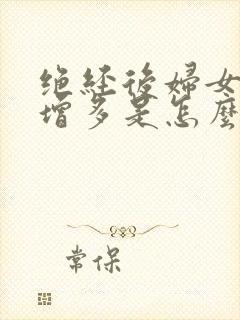 绝经後婦女
增多是怎麽
常保